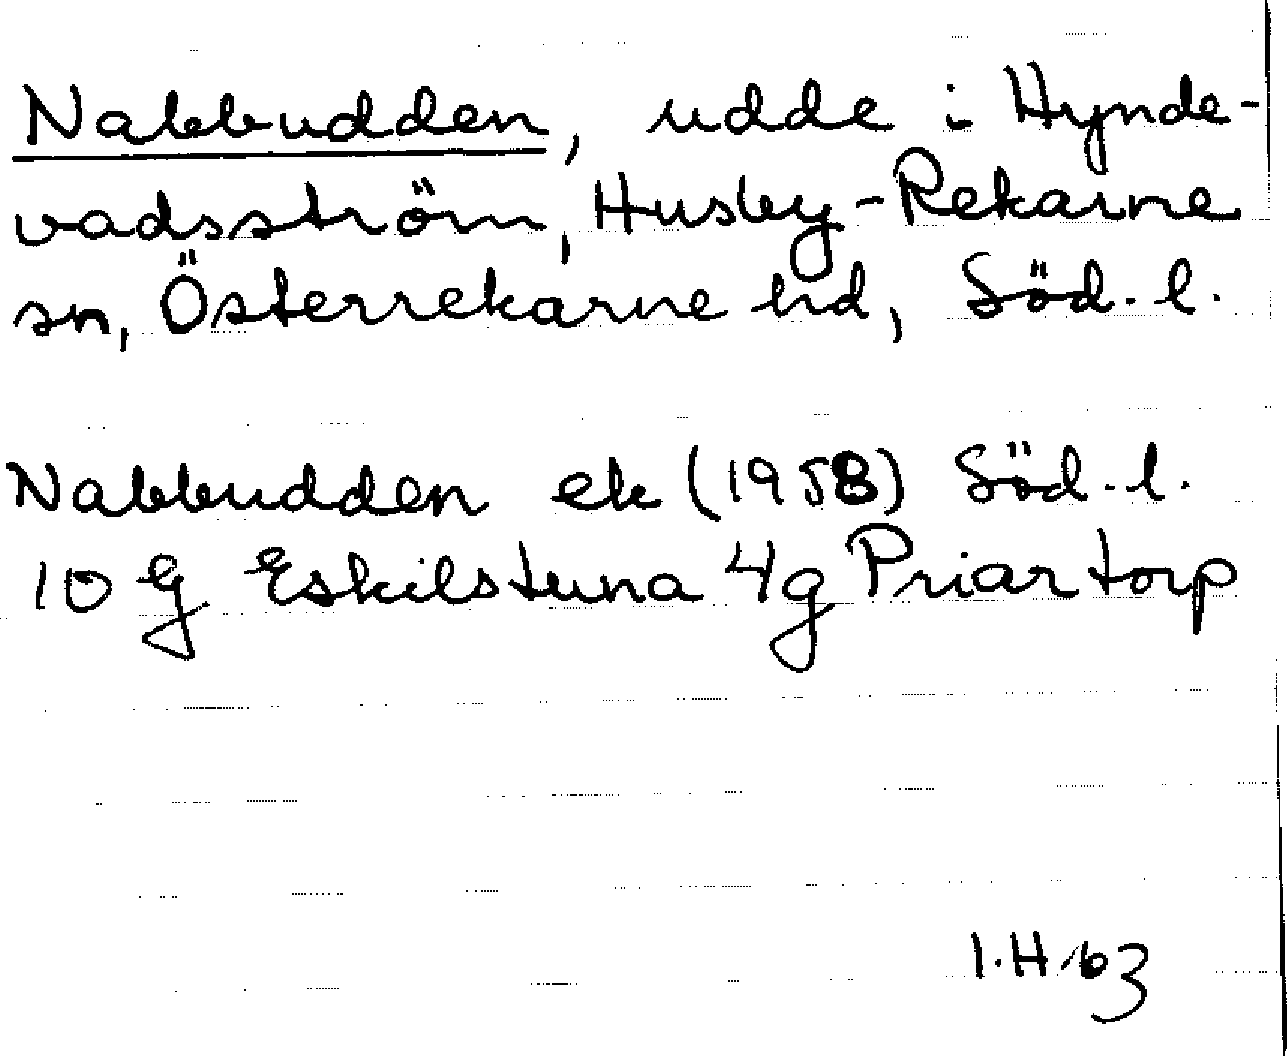 Nabbudden, udde i Hynde-
vadsström, Husby-Rekarne
sn, Österrekarne hd, Söd. l.
Nabbudden ek (1958) Söd. l.
10 G Eskilstuna 4g Priartorp
I.H 63